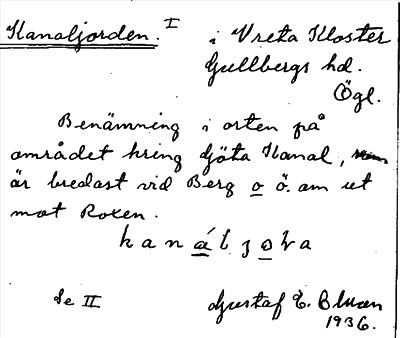 Kanaljorden. I i Vreta Kloster
Gullbergs hd.
Ögl.
Benämning i orten på
området kring Göta Kanal, som
är bredast vid Berg o ö. om ut
mot Roxen.
kanáljoṙa
Se II Gustaf E. 
1936.